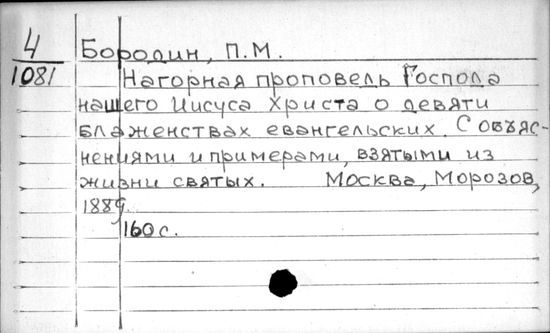 4
Бородин, П.М.
1081
Нагорная проповедь Господа
нашего Иисуса Христа о девяти
блаженствах евангельских. С объяс-
нениями и примерами, взятыми из
жизни святых. Москва, Морозов,
1889.
160 с.